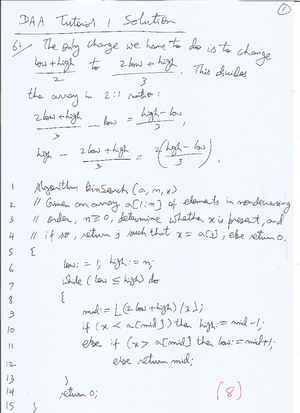 ①
DAA Tutorial 1 Solution
6:/ The only change we have to do is to change
(low+high)/2 to (2low+high)/3. This divides
the array in 2:1 ratio:
(2low+high)/3 - low = (high-low)/3,
high - (2low+high)/3 = 2(high-low)/3.
1 Algorithm BinSearch (a, n, x)
2 // Given an array a[1:n] of elements in nondecreasing
3 // order, n≥0, determine whether x is present, and
4 // if so, return j such that x = a[j]; else return 0.
5 {
6 low := 1; high := n;
7 while (low ≤ high) do
8 {
9 mid := ⌊(2.low+high)/3⌋;
10 if (x < a[mid]) then high := mid-1;
11 else if (x > a[mid]) then low := mid+1;
12 else return mid;
13 }
14 return 0;
15 }
(8)